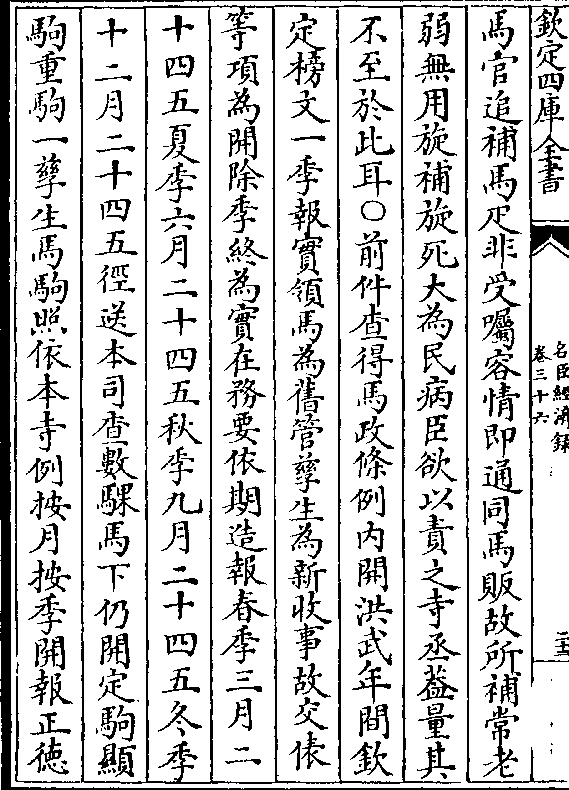 欽定四庫全書
名臣經濟録
卷三十六
馬官追補馬疋非受囑容情即通同馬販故所補常老
弱無用旋補旋死大為民病臣欲以責之寺丞葢量其
不至於此耳○前件查得馬政條例内開洪武年間欽
定榜文一季報實領馬為舊管孳生為新收事故交俵
等項為開除季終為實在務要依期造報春季三月二
十四五夏季六月二十四五秋季九月二十四五冬季
十二月二十四五徑送本司查數騍馬下仍開定駒顯
駒重駒一孳生馬駒照依本寺例按月按季開報正德